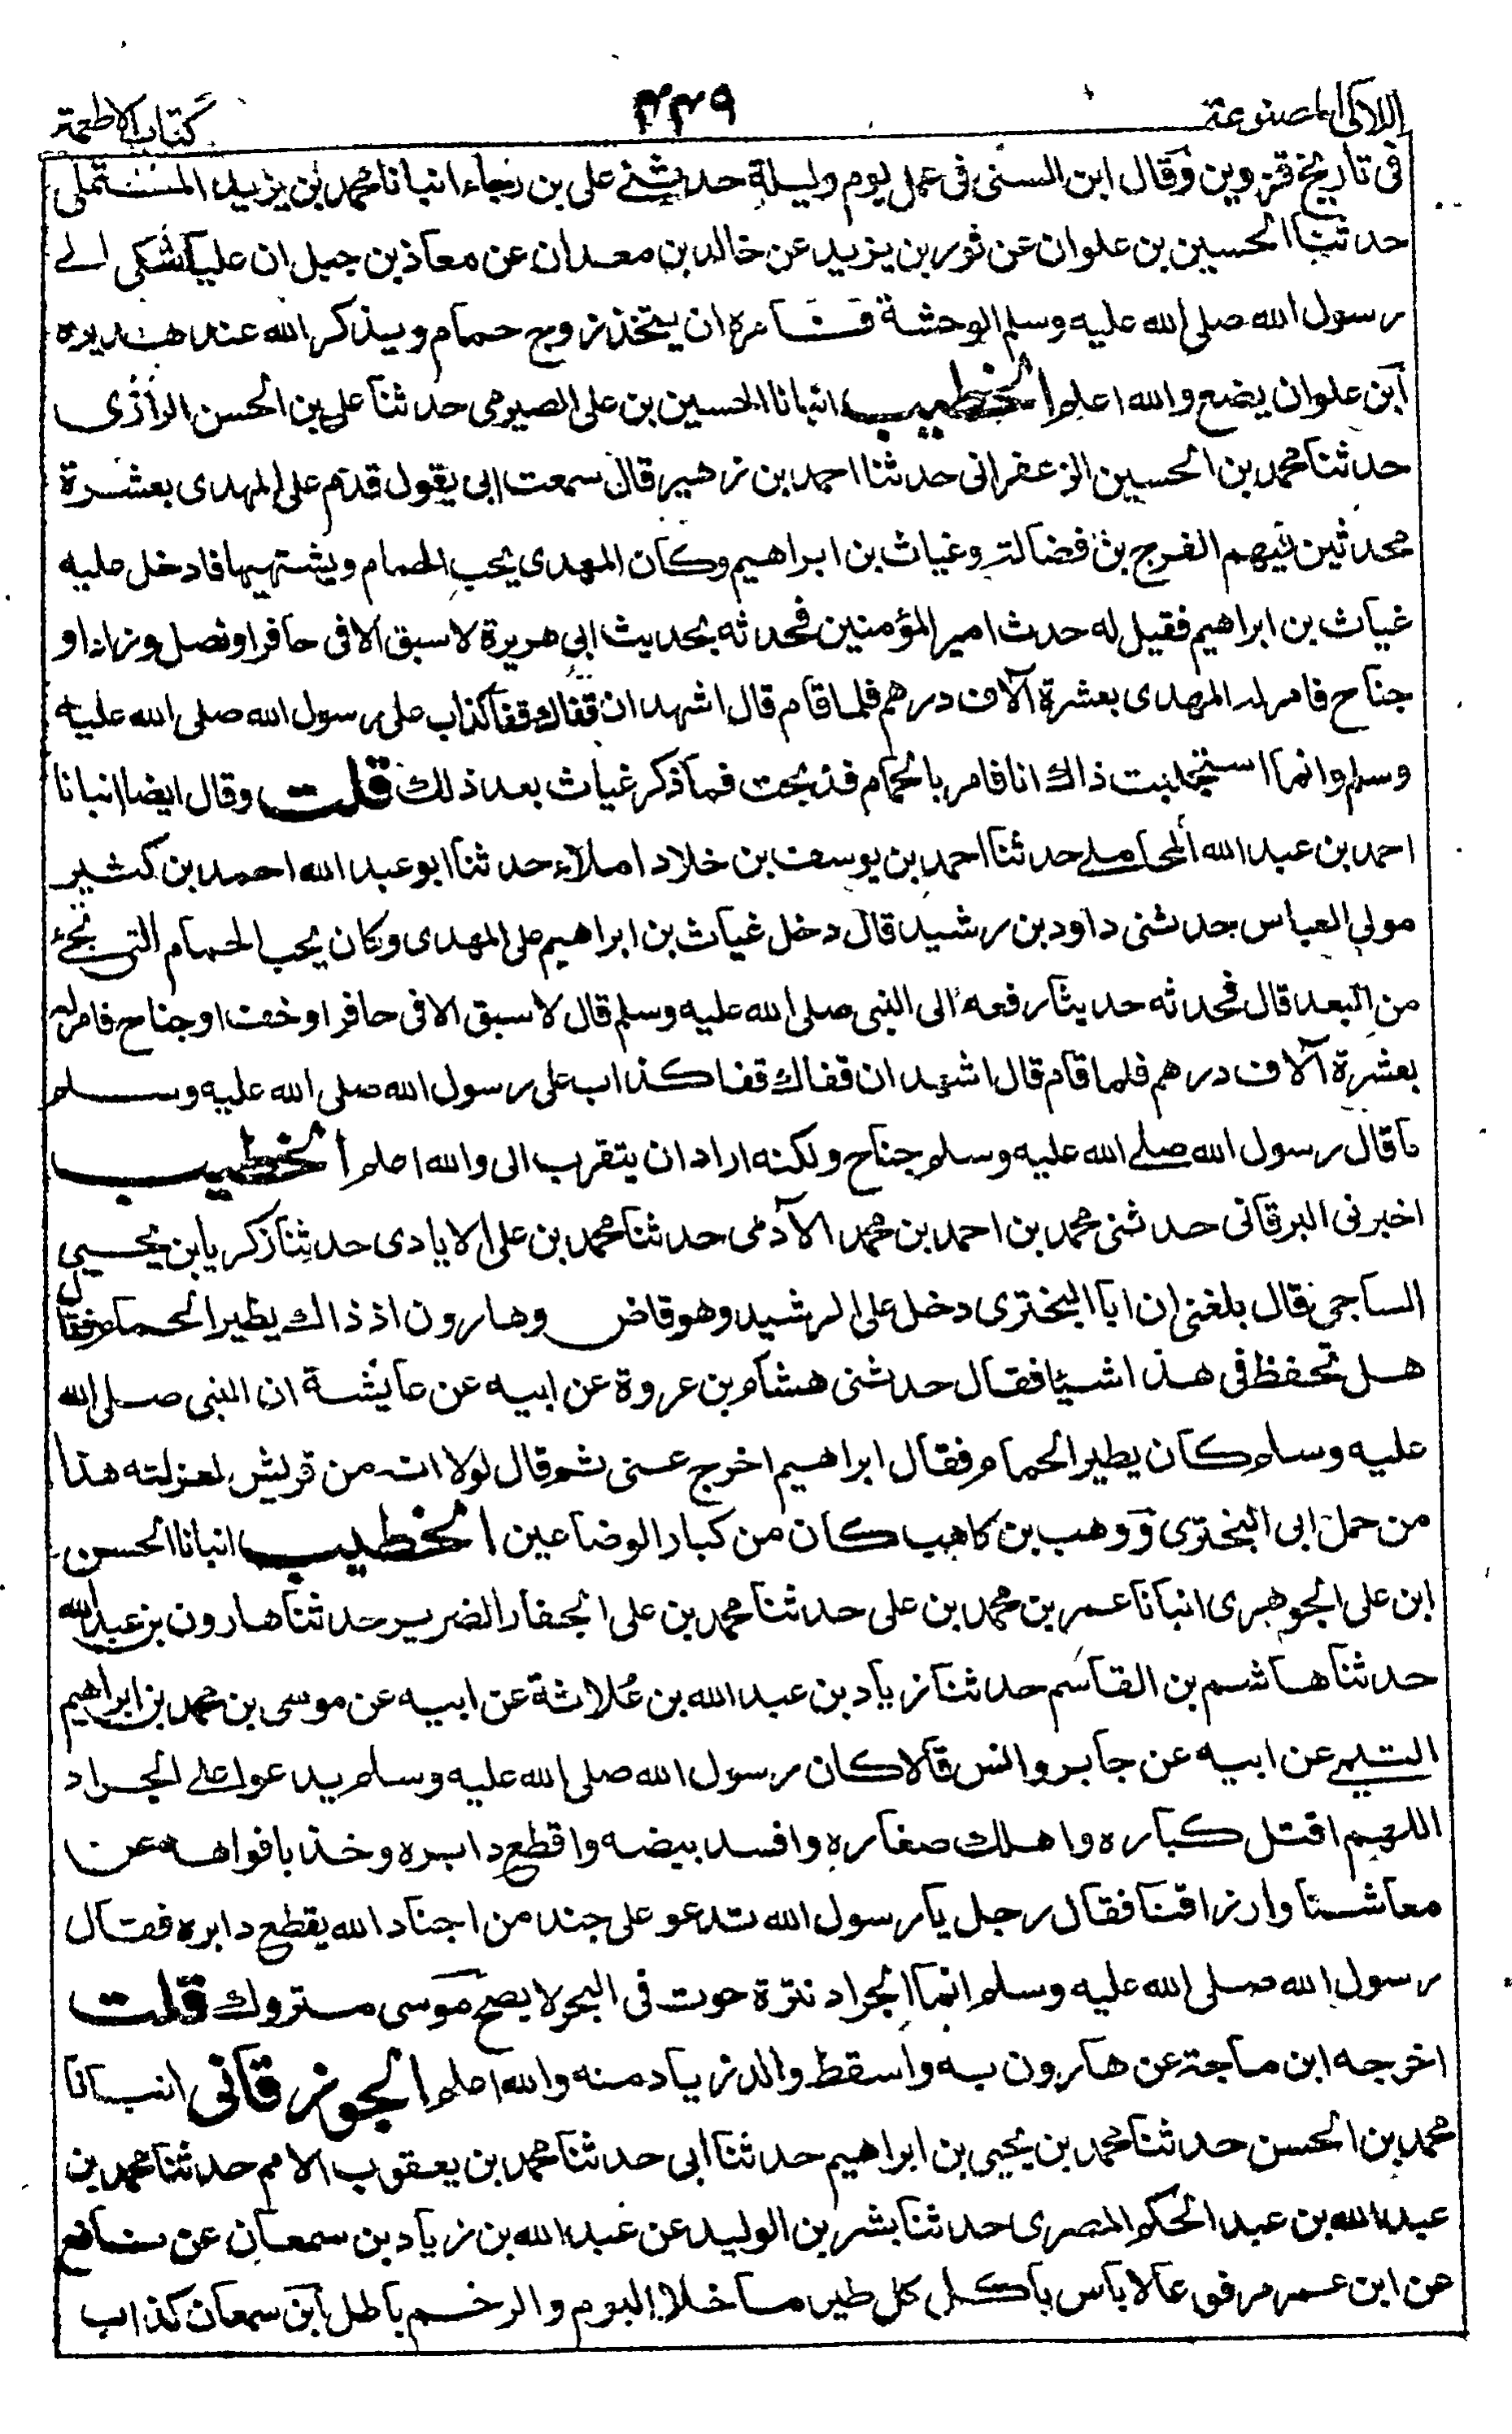 اللآلى المصنوعة
٤٤٩
كتاب الاطعمة
فى تاريخ قزوين وقال ابن السنى فى عمل يوم وليلة حدثنى على بن رجاء انبانا محمد بن يزيد المستملى
حدثنا الحسين بن علوان عن ثور بن يزيد عن خالد بن معدان عن معاذ بن جبل ان عليا شكى الے
رسول الله صلى الله عليه وسلم الوحشة فامره ان يتخذ زوج حمام ويذكر الله عند هديره
ابن علوان يضع والله اعلم الخطيب انبانا الحسين بن على الصيرمى حدثنا على بن الحسن الرازى
حدثنا محمد بن الحسين الزعفرانى حدثنا احمد بن زهير قال سمعت ابى يقول قدم على المهدى بعشرة
محدثين فيهم الفرج بن فضالة وغياث بن ابراهيم وكان المهدى يحب الحمام ويشتهيها فادخل عليه
غياث بن ابراهيم فقيل له حدث امير المؤمنين فحدثه بحديث ابى هريرة لا سبق الا فى حافر او نصل وزاد او
جناح فامر له المهدى بعشرة آلاف درهم فلما قام قال اشهد ان قفاك قفا كذاب على رسول الله صلى الله عليه
وسلم وانما استجلبت ذاك انا فامر بالحمام فذبحت فما ذكر غياث بعد ذلك قلت وقال ايضا انبانا
احمد بن عبد الله المحاملے حدثنا احمد بن يوسف بن خلاد املاء حدثنا ابو عبد الله احمد بن كثير
مولى العباس حدثنى داود بن رشيد قال دخل غياث بن ابراهيم على المهدى وكان يحب الحمام التى تجئ
من البعد قال فحدثه حديثا رفعه الى النبى صلى الله عليه وسلم قال لا سبق الا فى حافر او خف او جناح فامر له
بعشرة آلاف درهم فلما قام قال اشهد ان قفاك قفا كذاب على رسول الله صلى الله عليه وسلم
ما قال رسول الله صلے الله عليه وسلم جناح ولكنه اراد ان يتقرب الى والله اعلم الخطيب
اخبرنى البرقانى حدثنى محمد بن احمد بن محمد الآدمى حدثنا محمد بن على الايادى حدثنا زكريا بن يحيى
الساجى قال بلغنى ان ابا البخترى دخل على الرشيد وهو قاض وهارون اذ ذاك يطير الحمام فقال
هل تحفظ فى هذا شيئا فقال حدثنى هشام بن عروة عن ابيه عن عايشة ان النبى صلى الله
عليه وسلم كان يطير الحمام فقال ابراهيم اخرج عنى ثم قال لولا انه من قريش لعزلته هذا
من حمل ابى البخترى ووهب بن كاهب كان من كبار الوضاعين الخطيب انبانا الحسن
ابن على الجوهرى انبانا عمر بن محمد بن على حدثنا محمد بن على الحفار الضرير حدثنا هارون بن عبد الله
حدثنا هاشم بن القاسم حدثنا زياد بن عبد الله بن علاثة عن ابيه عن موسى بن محمد بن ابراهيم
التيمے عن ابيه عن جابر وانس قالا كان رسول الله صلى الله عليه وسلم يدعو على الجراد
اللهم اقتل كباره واهلك صغاره وافسد بيضه واقطع دابره وخذ بافواهه عن
معاشنا وارزاقنا فقال رجل يا رسول الله تدعو على جند من اجناد الله يقطع دابره فقال
رسول الله صلى الله عليه وسلم انما الجراد نثرة حوت فى البحر لا يصح موسى متروك قلت
اخرجه ابن ماجة عن هارون به واسقط والد زياد منه والله اعلم الجوزقانى انبانا
محمد بن الحسن حدثنا محمد بن يحيى بن ابراهيم حدثنا ابى حدثنا محمد بن يعقوب الاصم حدثنا محمد بن
عبد الله بن عبد الحكم المصرى حدثنا بشر بن الوليد عن عبد الله بن زياد بن سمعان عن نافع
عن ابن عمر مرفوعا لا باس باكل كل طير ما خلا البوم والرخم باطل ابن سمعان كذاب